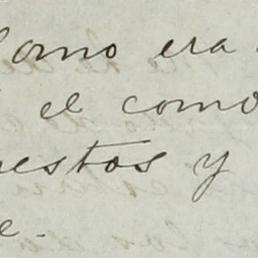 Como era
el como
estos y
e.-